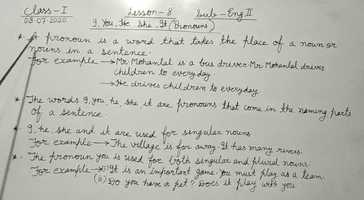 Class-I Lesson-8 Sub-Eng II
08-07-2020 I, You, He, She, It (Pronouns)
* A pronoun is a word that takes the place of a noun or
nouns in a sentence.
For example → Mr Mohanlal is a bus driver. Mr Mohanlal drives
children to everyday
→ He drives children to everyday.
* The words I, you, he, she it are pronouns that come in the naming parts
of a sentence
* I, he, she and it are used for singular nouns
For example → The village is far away. It has many rivers.
* The pronoun you is used for both singular and plural nouns.
For example → (i) It is an important game. You must play as a team.
(ii) Do you have a pet? Does it play with you